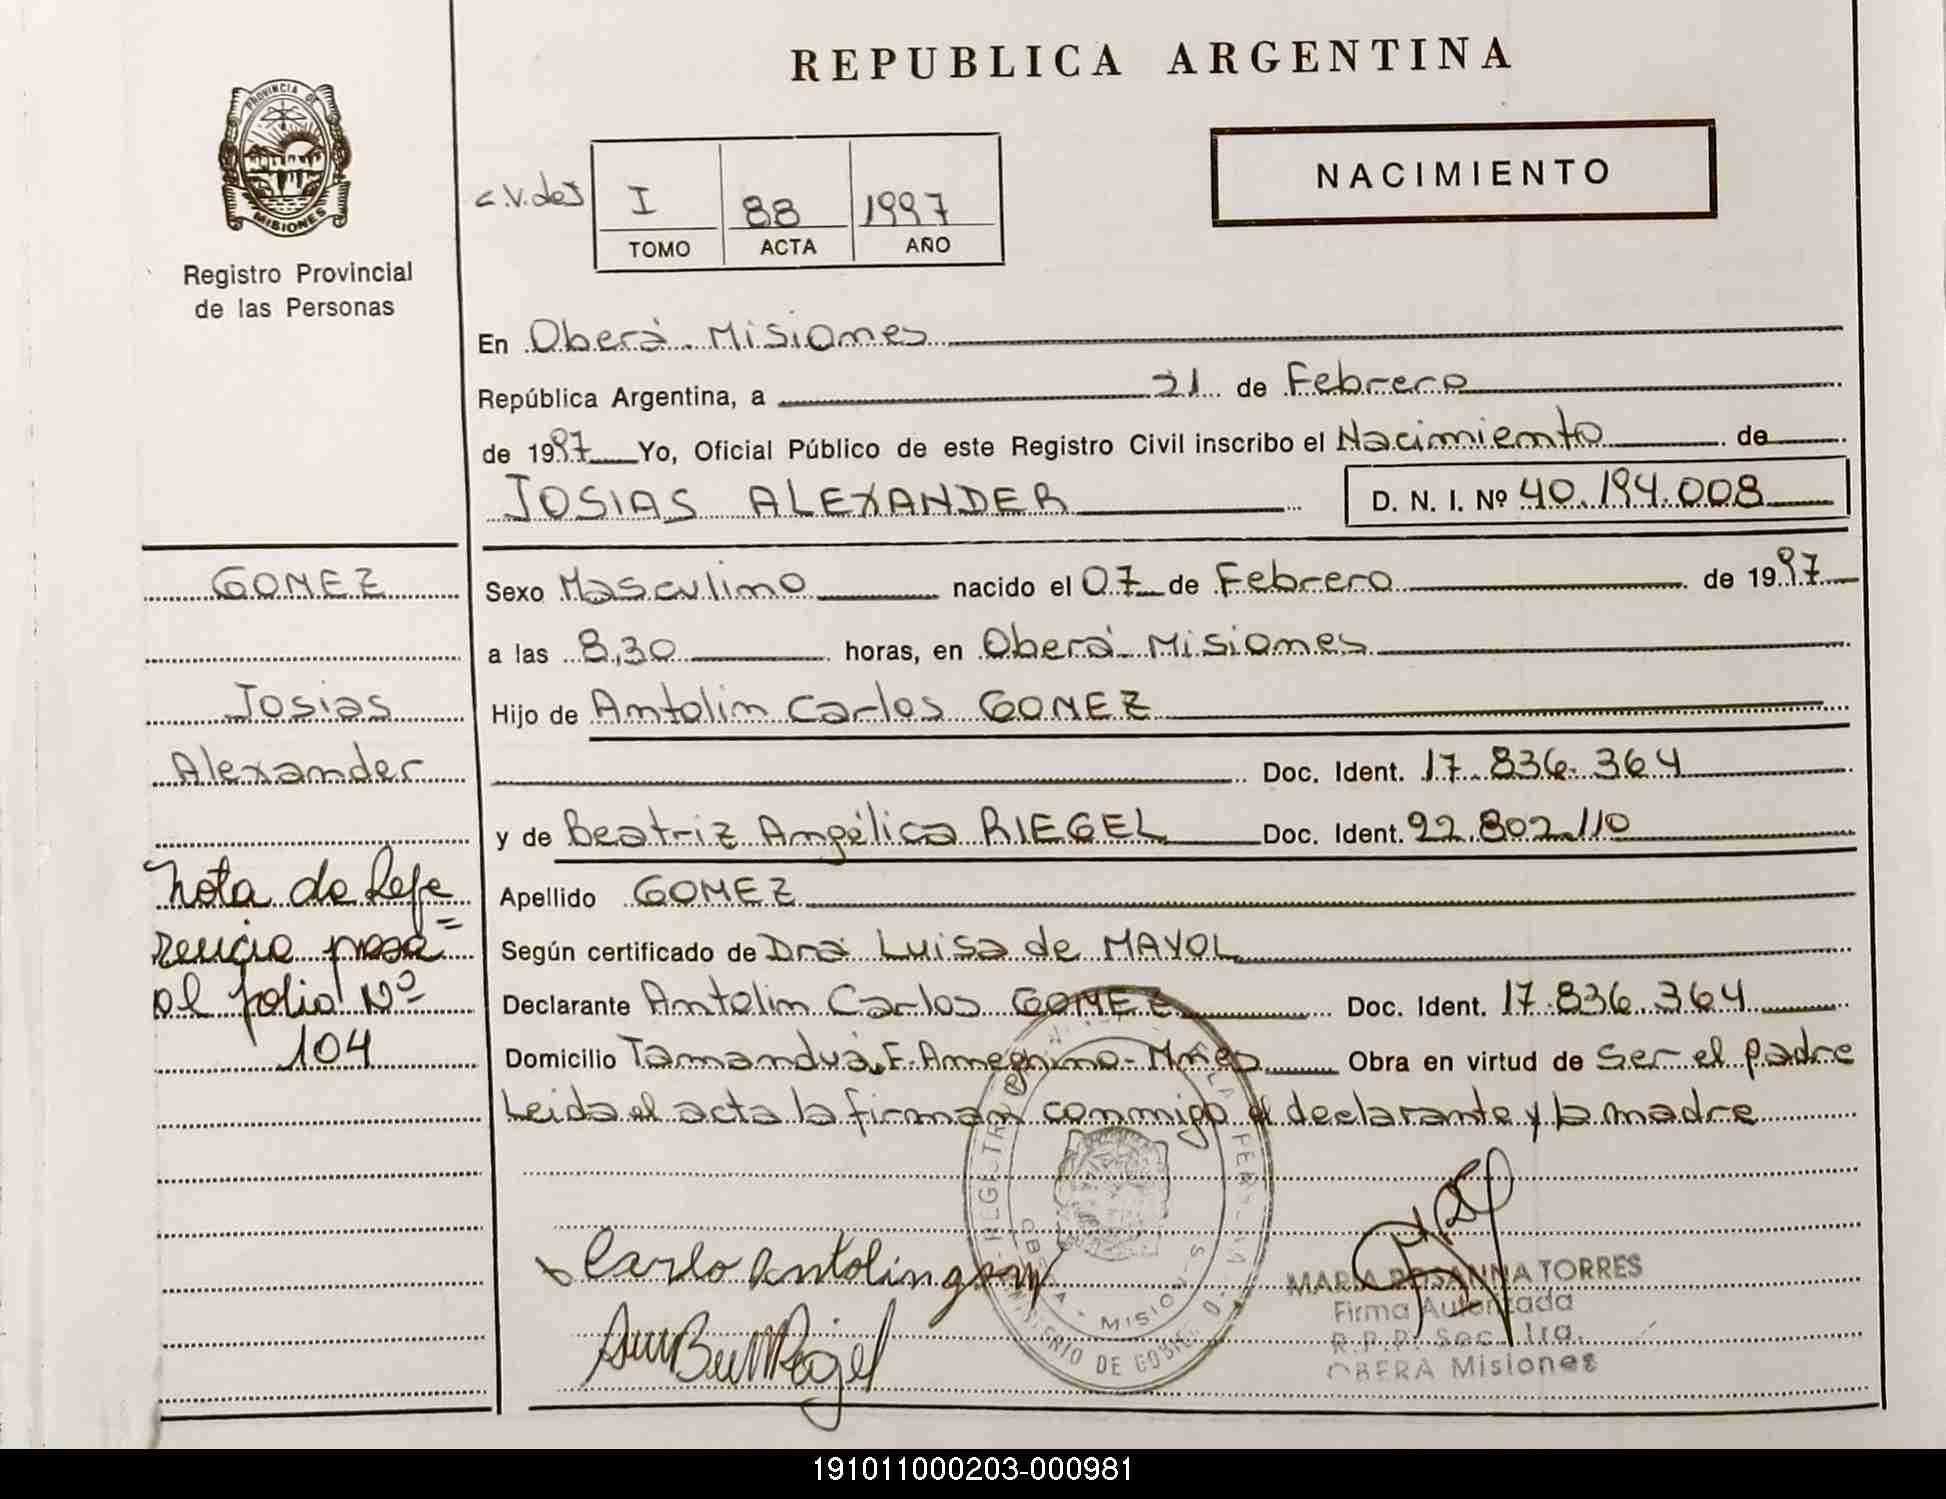 REPUBLICA ARGENTINA
PROVINCIA DE
MISIONES
Registro Provincial
de las Personas
c.V.deJ
I 88 1997
TOMO ACTA AÑO
NACIMIENTO
En Oberá. Misiones
República Argentina, a 21 de Febrero
de 1997 Yo, Oficial Público de este Registro Civil inscribo el Nacimiento de
JOSIAS ALEXANDER D. N. I. Nº 40.194.008
GOMEZ
Josias
Alexander
Nota de Refe
rencia pasa
al folio Nº
104
Sexo Masculino nacido el 07 de Febrero de 1997
a las 8,30 horas, en Oberá Misiones
Hijo de Antolin Carlos GOMEZ
Doc. Ident. 17.836.364
y de Beatriz Angélica RIEGEL Doc. Ident. 22.802.110
Apellido GOMEZ
Según certificado de Dra Luisa de MAYOL
Declarante Antolin Carlos GOMEZ Doc. Ident. 17.836.364
Domicilio Tamanduá, F. Ameghino-Mnes Obra en virtud de Ser el padre
Leida el acta la firman conmigo el declarante y la madre
Carlo Antolin
MARIA ROSANNA TORRES
Firma Autorizada
R.P.P. Sec. 1ra.
OBERA Misiones
MINISTERIO DE GOBIERNO
191011000203-000981